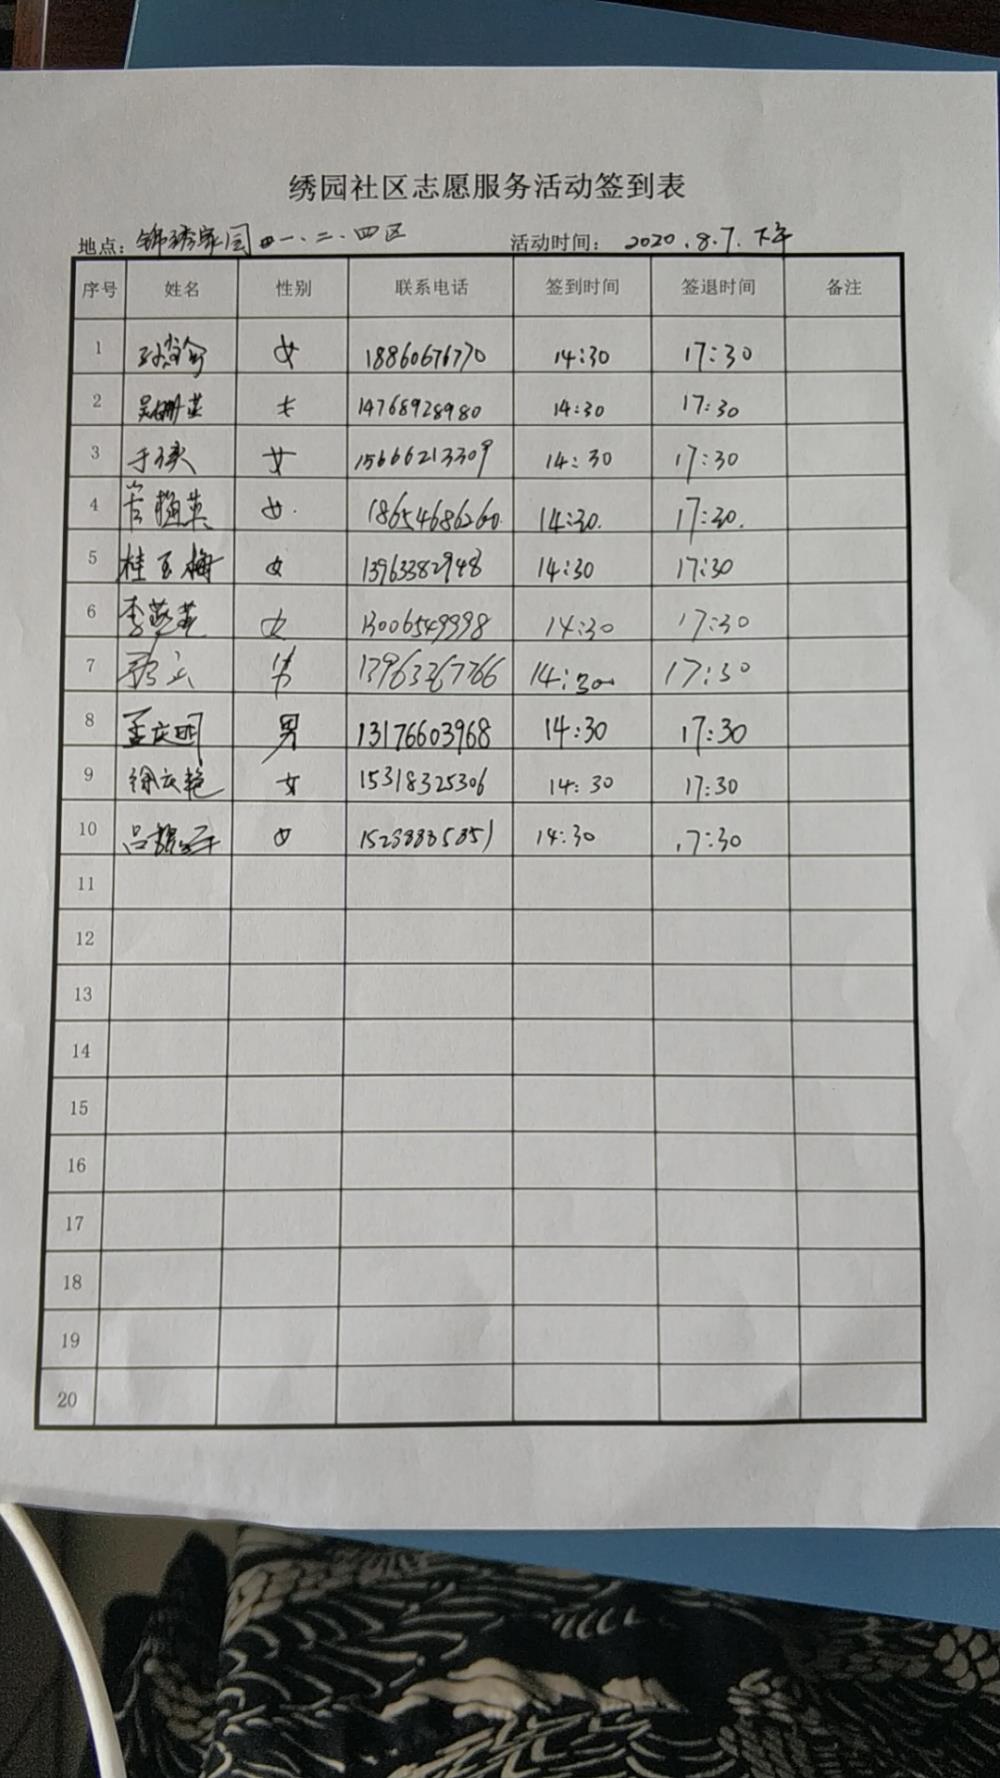 绣园社区志愿服务活动签到表
地点：锦绣家园一、二、四区 活动时间：2020.8.7.下午
序号 姓名 性别 联系电话 签到时间 签退时间 备注
1 女 18860676770 14:30 17:30
2 女 14768928980 14:30 17:30
3 女 15666213309 14:30 17:30
4 女 18654686260 14:30 17:30
5 桂玉梅 女 13963382948 14:30 17:30
6 李燕燕 女 13006549998 14:30 17:30
7 男 14:30 17:30
8 孟庆明 男 13176603968 14:30 17:30
9 徐庆艳 女 15318325306 14:30 17:30
10 女 14:30 17:30
11
12
13
14
15
16
17
18
19
20